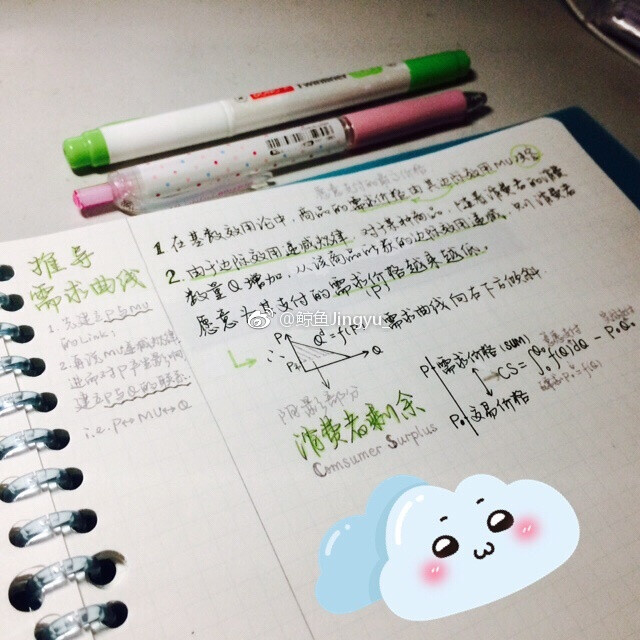 愿意支付的最高价格
1. 在基数效用论中，商品的需求价格由其边际效用MU决定
2. 由于边际效用递减规律，对于某种商品，随着消费者的消费
数量Q增加，从该商品的所得的边际效用递减，所以消费者
愿意为其支付的需求价格越来越低。
(P)
推导
需求曲线
1. 先建立P与MU
的Link!
2. 再将MU递减
进而对P产生影响
建立P与Q的联系
i.e. P↔MU↔Q
∴ P Q^d=f(P) 需求曲线向右下方倾斜.
P₀ Q
阴影部分
消费者剩余
Consumer Surplus
P 需求价格(sum)
CS=∫f(Q)dQ - P₀Q₀
P₀ 交易价格
@鲸鱼Jingyu_